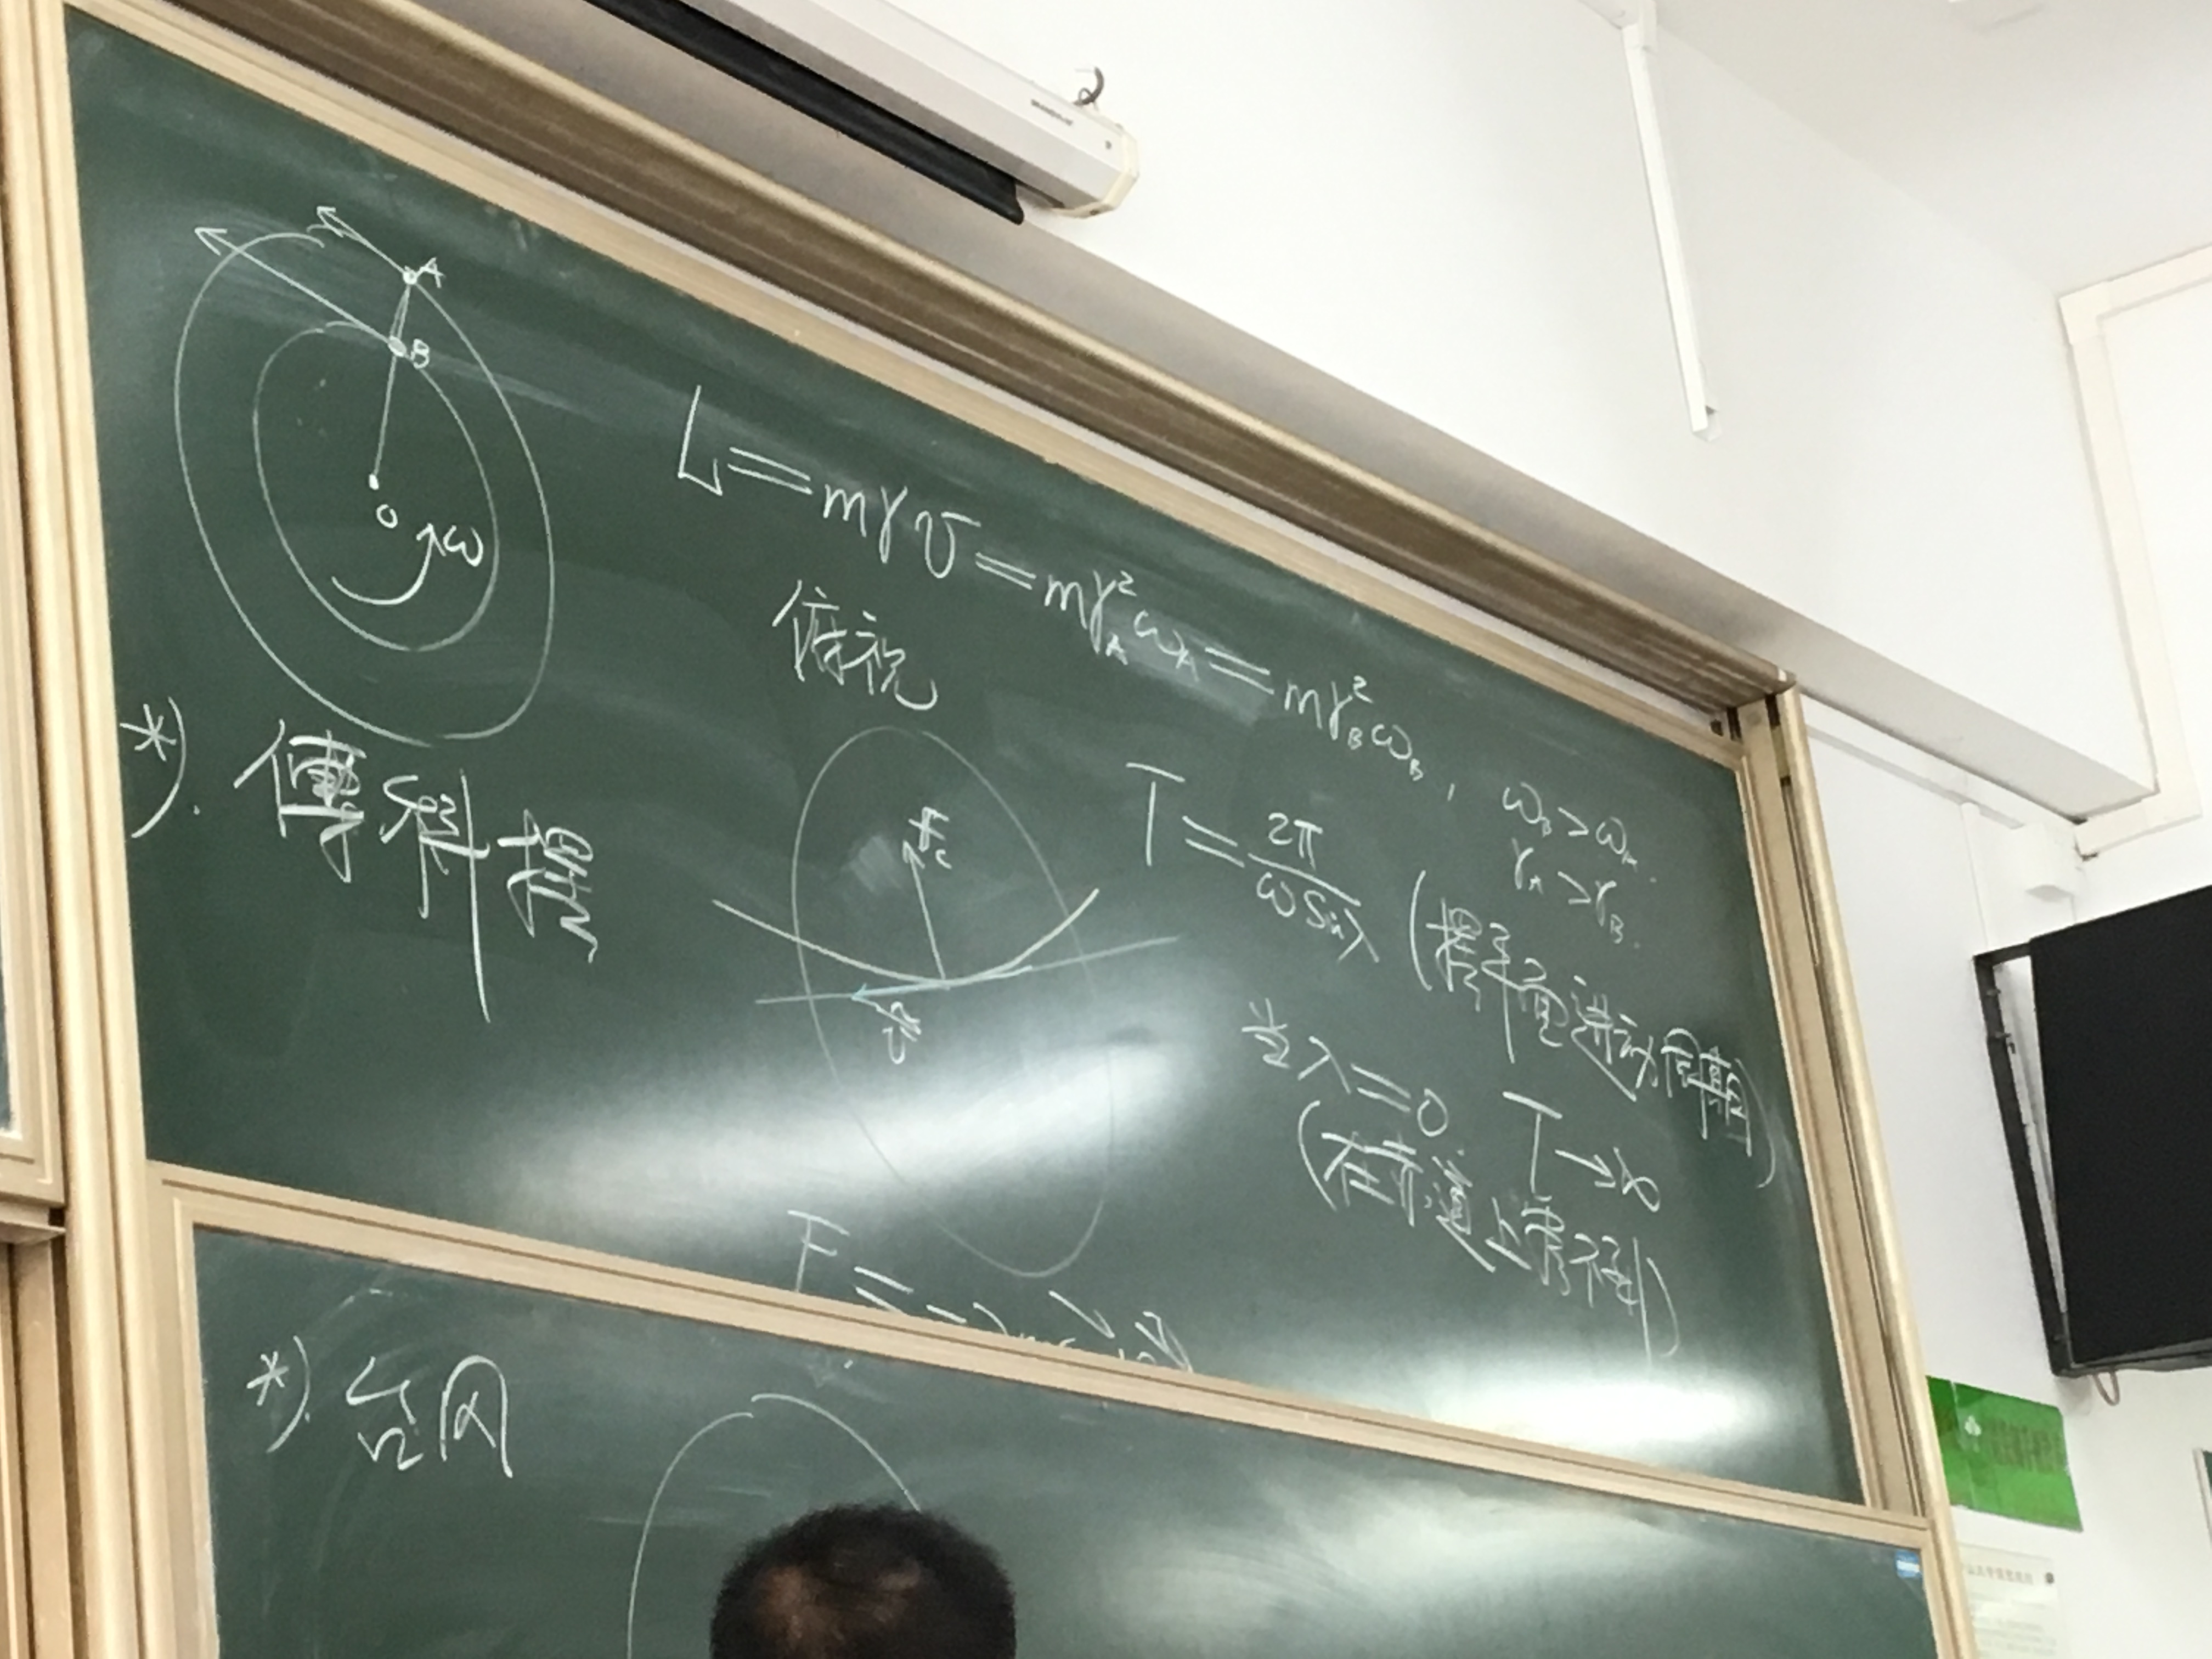 A
B
O
ω
L = mrv = mr_A²ω_A = mr_B²ω_B , ω_B > ω_A .
r_A > r_B .
*). 傅科摆
俯视
F_c
v
T = 2π / ω sinλ (摆平面进动周期)
当 λ = 0 T → ∞
(在赤道上看不到)
F =
*). 台风